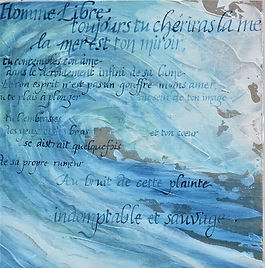 Homme Libre,
toujours tu chériras la me
la mer est ton miroir,
tu contemples ton âme
dans le déroulement infini de sa lame
Et ton esprit n'est pas un gouffre moins amer,
te plais à plonger au sein de ton image
tu l'embrasses
des yeux et des bras et ton cœur
se distrait quelquefois
de sa propre rumeur
Au bruit de cette plainte
indomptable et sauvage